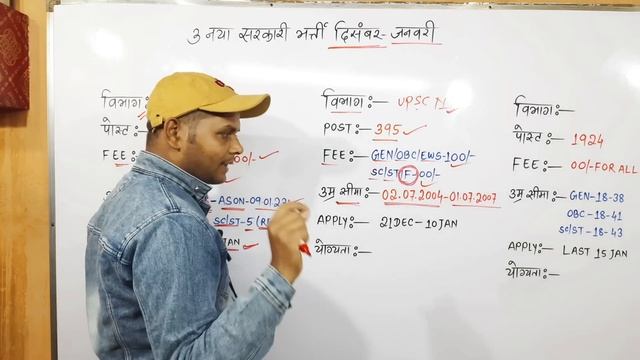 3 नया सरकारी भर्त्ती दिसंबर- जनवरी
विभाग:-
पोस्ट
FEE
00/-
- ASON-09.01.22
SC/ST-5 (RE
JAN
विभाग:- UPSC
POST:- 395
FEE:- GEN/OBC/EWS-100/-
SC/ST/F-00/-
उम्र सीमा:- 02.07.2004-01.07.2007
APPLY:- 21DEC-10JAN
योग्यता:-
विभाग:-
पोस्ट:- 1924
FEE:- 00/-FOR ALL
उम्र सीमा:- GEN-18-38
OBC-18-41
SC/ST-18-43
APPLY:- LAST 15 JAN
योग्यता:-